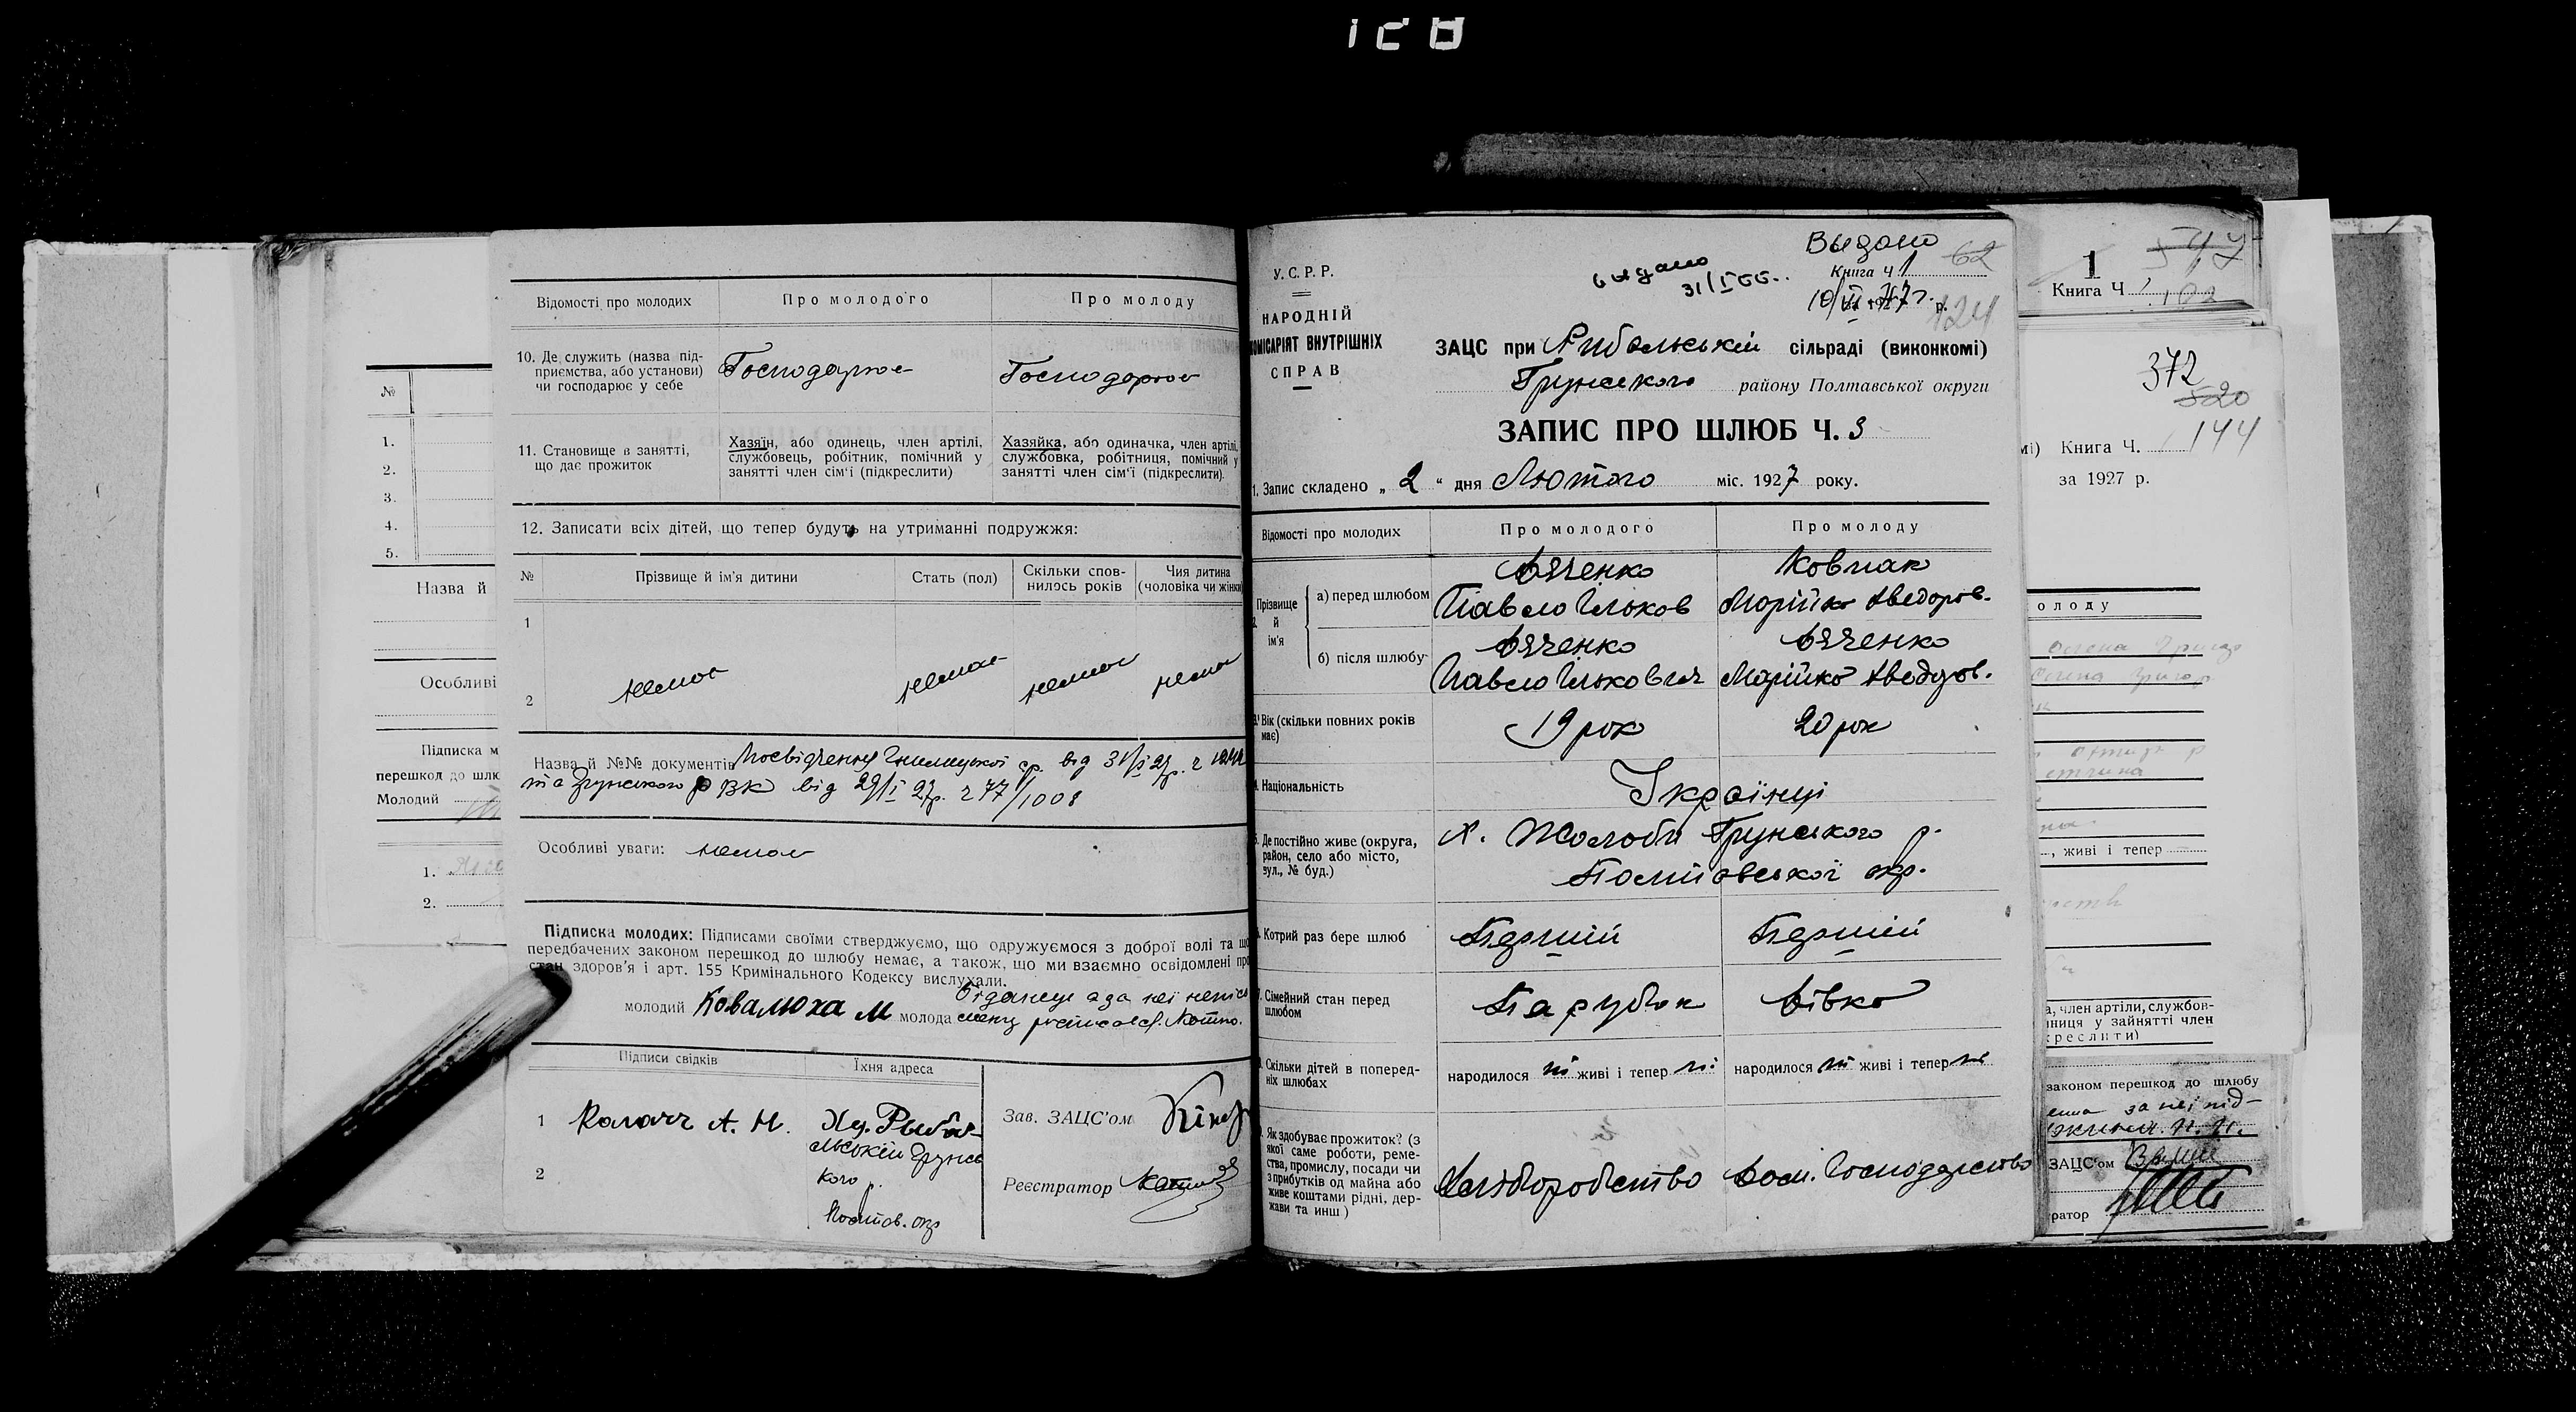 128
№
1.
2.
3.
4.
5.
Назва й
Особливі
Підписка м
перешкод до шлю
Молодий
1.
2.
Відомості про молодих
Про молодого
Про молоду
10. Де служить (назва під-
приємства, або установи)
чи господарює у себе
Господарює
Господарює
11. Становище в занятті,
що дає прожиток
Хазяїн, або одинець, член артілі,
службовець, робітник, помічний у
занятті член сім'ї (підкреслити)
Хазяйка, або одиначка, член артілі,
службовка, робітниця, помічний у
занятті член сім'ї (підкреслити).
12. Записати всіх дітей, що тепер будуть на утриманні подружжя:
№
Прізвище й ім'я дитини
Стать (пол)
Скільки спов-
нилось років
Чия дитина
(чоловіка чи жінки)
1
2
немає
немає
немає
немає
Назва й №№ документів Посвідчення ср. від 31/I 27р. ч
та Грунського РВК від 29/I 27р. ч 77/1008
Особливі уваги: немає
Підписка молодих: Підписами своїми стверджуємо, що одружуємося з доброї волі та що
передбачених законом перешкод до шлюбу немає, а також, що ми взаємно освідомлені про
стан здоров'я і арт. 155 Кримінального Кодексу вислухали.
молодий Ковалюха М молода
а за неї непись
менну
Підписи свідків
Їхня адреса
1 Калач А. Н.
Ху. Рыба-
льській Грунсь
кого р.
Полтов. окр
2
Зав. ЗАЦС'ом
Реєстратор
У.С.Р.Р.
НАРОДНІЙ
КОМІСАРІЯТ ВНУТРІШНІХ
СПРАВ
выдано
31/I 66.
Выдано
Книга ч 1
62
124
р.
ЗАЦС при Рибальській сільраді (виконкомі)
Грунського району Полтавської округи
ЗАПИС ПРО ШЛЮБ Ч. 3
1. Запис складено „ 2 “ дня Лютого міс. 1927 року.
Відомості про молодих
Про молодого
Про молоду
Прізвище
й
ім'я
а) перед шлюбом
Дяченко
Павло Ільков
Ковпак
Марійка Хведоров.
б) після шлюбу
Дяченко
ПавлоІлькович
Дяченко
Марійка Хведоров.
Вік (скільки повних років
має)
19 рок
20 рок
Національність
Українці
Де постійно живе (округа,
район, село або місто,
вул., № буд.)
х. Жолоби Грунського р.
Полтавської окр.
Котрий раз бере шлюб
Перший
Перший
Сімейний стан перед
шлюбом
Парубок
Дівка
Скільки дітей в поперед-
ніх шлюбах
народилося ні живі і тепер ні
народилося ні живі і тепер ні
Як здобуває прожиток? (з
якої саме роботи, реме-
ства, промислу, посади чи
з прибутків од майна або
живе коштами рідні, дер-
жави та инш)
Хліборобство
Дом. Господарство
1
547
Книга Ч
102
372
520
144
мі) Книга Ч.
за 1927 р.
олоду
, живі і тепер
а, член артіли, службов-
ниця у зайнятті член
креслити)
законом перешкод до шлюбу
за неї під-
ЗАЦС'ом
ратор